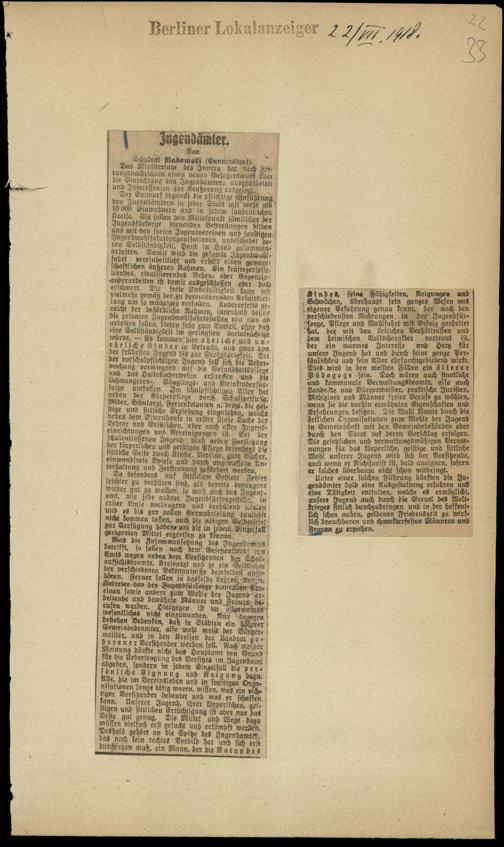 Berliner Lokalanzeiger 22/VII. 1918.
22
33
Jugendämter.
Von
Schulrat Radomski (Cunnersdorf).
Das Ministerium des Innern hat nach Zei-
tungsnachrichten einen neuen Gesetzentwurf über
die Einrichtung von Jugendämtern ausgearbeitet
und Interessenten zur Äußerung vorgelegt.
Der Entwurf bezweckt die pflichtige Einführung
von Jugendämtern in jeder Stadt mit mehr als
10 000 Einwohnern und in jedem landrätlichen
Kreise. Sie sollen den Mittelpunkt sämtlicher der
Jugendfürsorge dienenden Bestrebungen bilden
und mit den freien Jugendvereinen und sonstigen
Jugendwohlfahrtsorganisationen, unbeschadet de-
ren Selbständigkeit, Hand in Hand zusammen-
arbeiten. Damit wird die gesamte Jugendwohl-
fahrt vereinheitlicht und erhält einen gemein-
schaftlichen äußeren Rahmen. Ein kräftezersplit-
terndes, rivalisierendes Neben- oder Gegenein-
anderarbeiten ist damit ausgeschlossen oder doch
erschwert. Die freie Liebestätigkeit kann sich
vielmehr gemäß der zu vereinbarenden Arbeitstei-
lung um so wirksamer entfalten.
würde. — Es kommen hier eheliche und un-
eheliche Kinder in Betracht, und zwar von
der frühesten Jugend bis zur Großjährigkeit. Bei
der vorschulpflichtigen Jugend soll sich die Ueber-
wachung vorwiegend auf die Gesundheitspflege
und das Haltekinderwesen erstrecken und die
Schwangeren-, Säuglings- und Kleinkinderfür-
sorge umfassen. Im schulpflichtigen Alter hat
neben der Körperpflege durch Schulspeisung,
Bäder, Schularzt, Ferienkolonien u. dergl. die gei-
stige und sittliche Erziehung einzusetzen, welche
neben dem Elternhause in erster Linie Sache der
Lehrer und Geistlichen, aber auch aller Jugend-
einrichtungen und Vereinigungen ist. Bei der
schulentlassenen Jugend muß neben Förderung
der körperlichen und geistigen Pflege besonders die
sittliche Seite durch Kinos, Vereine, gute Bücher,
einwandfreie Spiele und durch angemessene Un-
terhaltung und Zerstreuung gefördert werden.
Da besonders auf sittlichem Gebiete Fehler
leichter zu verhüten sind, als bereits begangene
wieder gut zu machen, so muß auch das Jugend-
amt, wie jede andere Jugendfürsorgestelle, in
erster Linie vorbeugend und verhütend wirken
und es bis zur vollen Verwahrlosung zunächst
nicht kommen lassen, auch die nötigen Geldmittel
zur Verfügung haben, um die in jedem Einzelfall
geeigneten Mittel ergreifen zu können.
Was die Zusammensetzung des Jugendamtes
betrifft, so sollen nach dem Gesetzentwurf von
Amts wegen neben dem Vorsitzenden der Schul-
aufsichtsbeamte, Kreisarzt und je ein Geistlicher
der verschiedenen Bekenntnisse demselben ange-
hören. Ferner sollen in dasselbe Lehrer, Aerzte,
Vertreter von der Jugendfürsorge dienenden Ver-
einen sowie andere zum Wohle der Jugend ar-
beitende und bewährte Männer und Frauen be-
rufen werden. Hiergegen ist im allgemeinen
wesentliches nicht einzuwenden. Nur dagegen
bestehen Bedenken, daß in Städten ein höherer
Gemeindebeamter, also wohl meist der Bürger-
meister, und in den Kreisen der Landrat ge-
borener Vorsitzender werden soll. Nach meiner
Meinung dürfte nicht das Hauptamt den Grund
für die Uebertragung des Vorsitzes im Jugendamt
abgeben, sondern in jedem Einzelfall die per-
sönliche Eignung und Neigung dazu.
Alle, die im Vereinsleben und in sonstigen Orga-
nisationen lange tätig waren, wissen, was ein rich-
tiger Vorsitzender bedeutet und was er schaffen
kann. Unserer Jugend, ihrer körperlichen, gei-
stigen und sittlichen Ertüchtigung ist aber nur das
Beste gut genug. Die Mittel und Wege dazu
müssen vielfach erst gesucht und erkämpft werden.
Deshalb gehört an die Spitze des Jugendamtes,
das noch kein rechtes Vorbild hat und sich erst
durchsetzen muß, ein Mann, der die Natur des
Kindes, seine Fähigkeiten, Neigungen und
Schwächen, überhaupt sein ganzes Wesen aus
eigener Erfahrung genau kennt, der nach den
verschiedensten Richtungen in der Jugendfür-
sorge, Pflege und Wohlfahrt mit Erfolg gearbeitet
hat, der mit den örtlichen Verhältnissen und
dem heimischen Volkscharakter vertraut ist,
der ein warmes Interesse und Herz für
unsere Jugend hat und durch seine ganze Per-
sönlichkeit und sein Alter ehrfurchtgebietend wirkt.
Dies wird in den meisten Fällen ein älterer
Pädagoge sein. Doch wären auch staatliche
und kommunale Verwaltungsbeamte, also auch
Landräte und Bürgermeister, praktische Juristen,
Mediziner und Männer freier Berufe zu wählen,
wenn sie die vorhin erwähnten Eigenschaften und
Erfahrungen besitzen. Die Wahl könnte durch die
örtlichen Organisationen zum Wohle der Jugend
in Gemeinschaft mit den Gemeindebehörden oder
durch den Staat auf deren Vorschlag erfolgen.
Die gesetzlichen und verwaltungsmäßigen Voraus-
setzungen für das körperliche, geistige und sittliche
Wohl unserer Jugend wird sich der Vorsitzende,
auch wenn er Nichtjurist ist, bald aneignen, sofern
er solches überhaupt nicht schon mitbringt.
Unter einer solchen Führung dürften die Ju-
gendämter bald eine Ausgestaltung erfahren und
eine Tätigkeit entfalten, welche es ermöglicht,
unsere Jugend auch durch die Unrast des Welt-
krieges sittlich durchzubringen und in der hoffent-
lich schon nahen, goldenen Friedenszeit zu wirk-
lich brauchbaren und charakterfesten Männern und
Frauen zu erziehen.